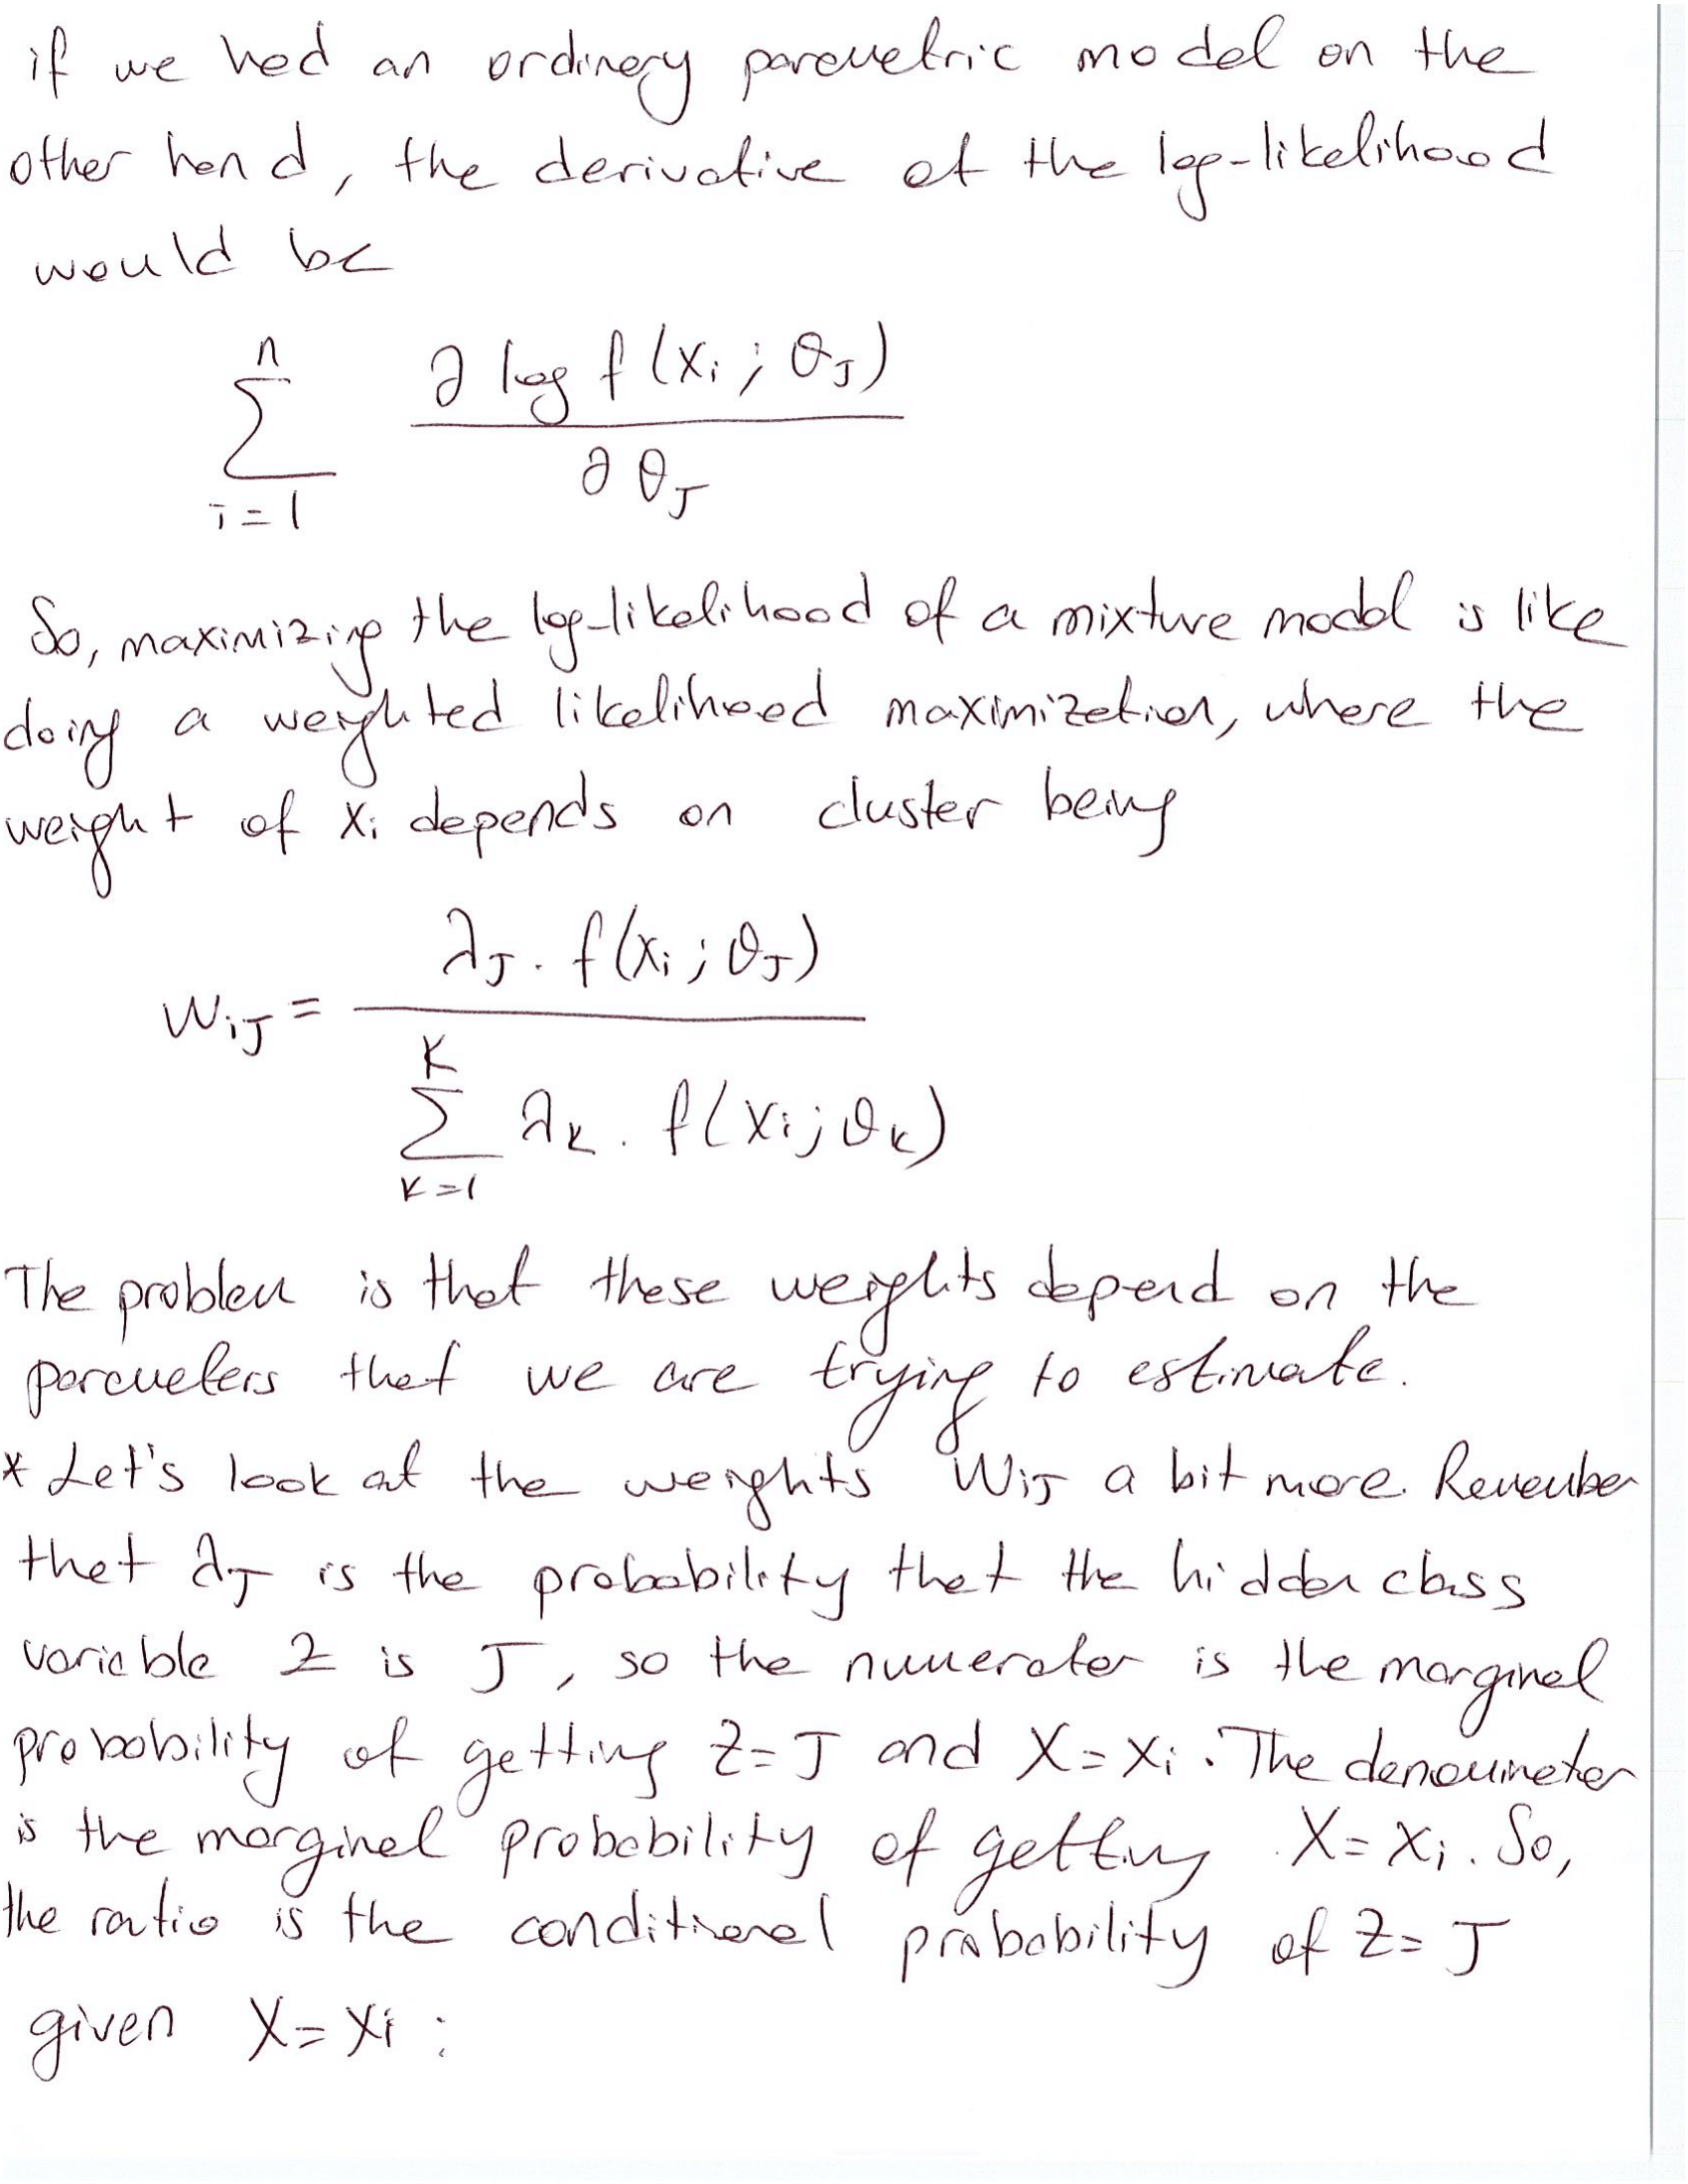 if we had an ordinary parametric model on the
other hand, the derivative of the log-likelihood
would be
n
∑ ∂ log f(xi; θJ)
i=1 ∂θJ
So, maximizing the log-likelihood of a mixture model is like
doing a weighted likelihood maximization, where the
weight of xi depends on cluster being
λJ. f(xi; θJ)
WiJ =
K
∑ λk. f(xi; θk)
k=1
The problem is that these weights depend on the
parameters that we are trying to estimate.
* Let's look at the weights WiJ a bit more. Remember
that λJ is the probability that the hidden class
variable Z is J, so the numerator is the marginal
probability of getting Z=J and X=xi. The denominator
is the marginal probability of getting X=xi. So,
the ratio is the conditional probability of Z=J
given X=xi: